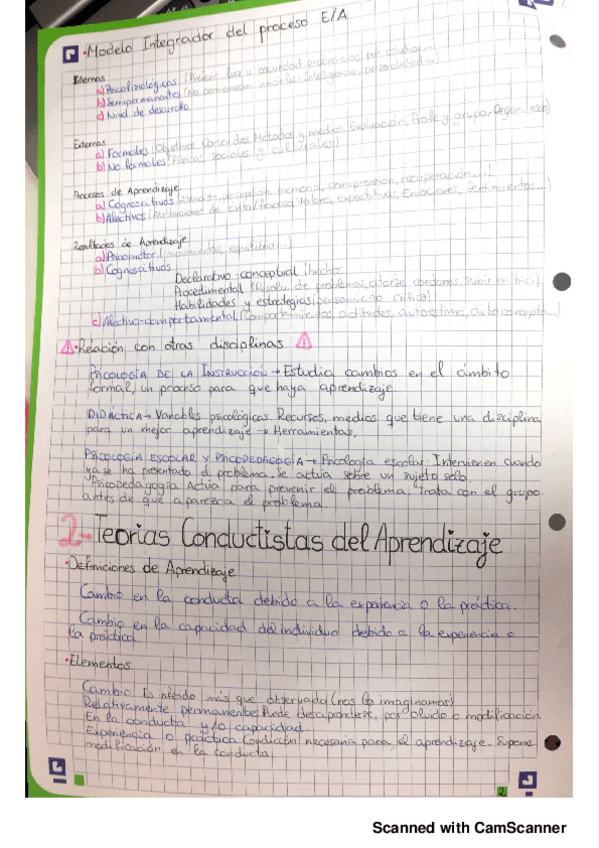 ·Modelo Integrador del proceso E/A
Internas
a) Psicobiológicas
b) Semipermanentes (No permanecen
c) Nivel de desarrollo
Externas
a) Formales (Objetivos
b) No formales (Físicas, sociales y culturales)
Procesos de Aprendizaje
a) Cognoscitivos memoria, comprensión, recuperación...)
b) Afectivos (Atribuciones de éxito/fracaso, Valores, expectativas, Emociones, Sentimientos...)
Resultados de Aprendizaje
a) Psicomotor (movimientos, equilibrio...)
b) Cognoscitivos
Declarativo-conceptual (hechos
Procedimental (Resolu. de problemas, atarse cordones, subir en bici)
Habilidades y estrategias (pensamiento crítico)
c) Afectivo-comportamental (comportamientos, actitudes, autoestima, autoconcepto...)
·Relación con otras disciplinas
PSICOLOGÍA DE LA INSTRUCCIÓN → Estudia cambios en el ámbito
formal, un proceso para que haya aprendizaje.
DIDÁCTICA → Variables psicológicas. Recursos, medios que tiene una disciplina
para un mejor aprendizaje → Herramientas.
PSICOLOGÍA ESCOLAR Y PSICOPEDAGOGÍA → Psicología escolar: Intervienen cuando
ya se ha presentado el problema, se actúa sobre un sujeto solo.
Psicopedagogía Actúa para prevenir el problema. Trata con el grupo
antes de que aparezca el problema.
2- Teorías Conductistas del Aprendizaje
·Definiciones de Aprendizaje
Cambio en la conducta debido a la experiencia o la práctica.
Cambio en la capacidad del individuo debido a la experiencia o
la práctica.
·Elementos
Cambio: Es inferido más que observado (nos lo imaginamos)
Relativamente permanente: Puede desaparecer, por olvido o modificación
En la conducta y/o capacidad.
Experiencia o práctica: Condición necesaria para el aprendizaje. Supone
modificación en la conducta
2
Scanned with CamScanner